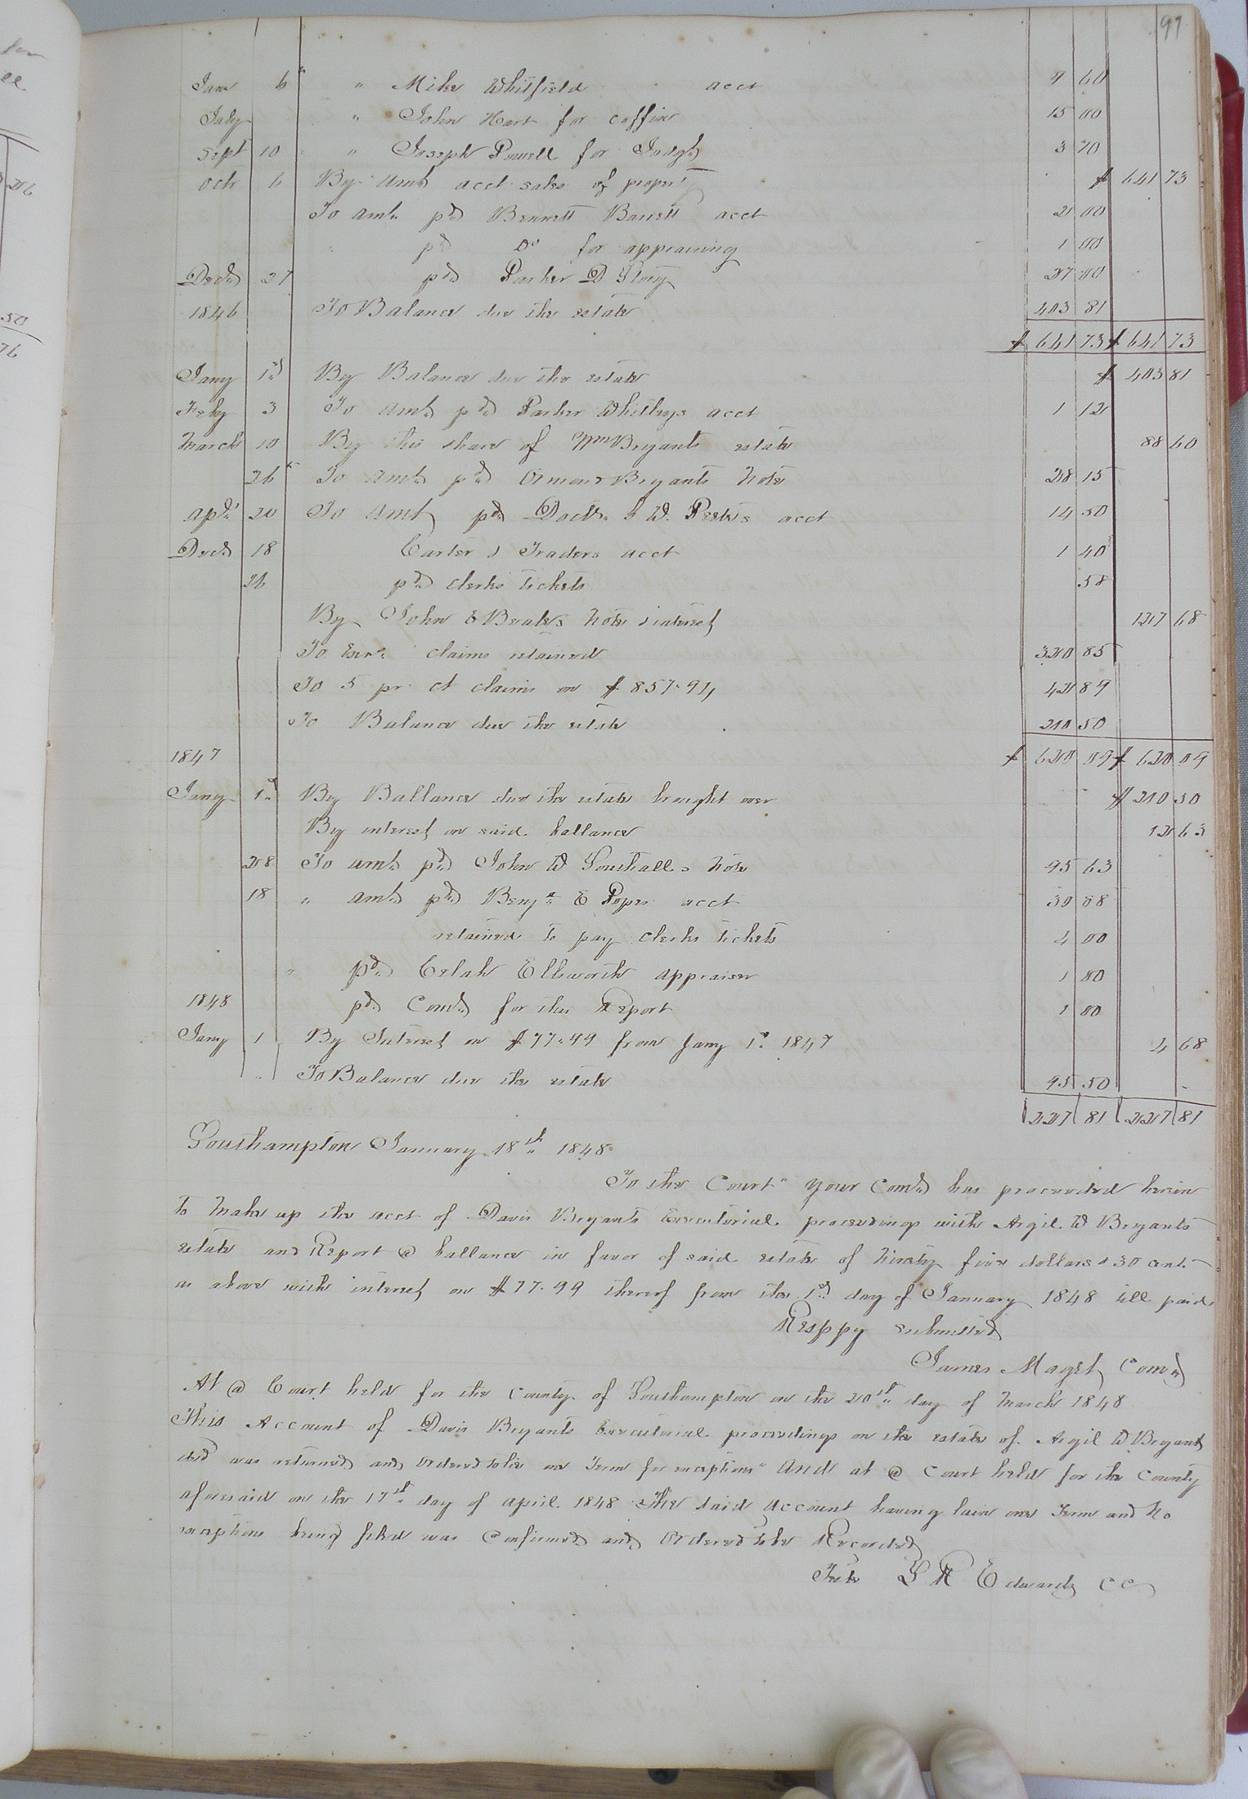 97
Jan 6th " Mike Whitfield acct 9 60
July " John Hart for coffin 15 00
Sept 10 " Joseph Powell for Judgt 3 70
Oct 6 By Amt acct sales of property $ 641 73
To amt pd Bennett Barrett acct 21 00
pd Do for appraising 1 00
Decr 27 pd Parker D Story 27 00
1846 To Balance due the estate 403 81
$ 641 73 $ 641 73
Jany 1st By Balance due the estate $ 403 81
Feby 3 To Amt pd Parker Whitleys acct 1 12
March 10 By this share of Wm Bryants estate 88 60
26th To Amt pd Ormond Bryants Note 28 15
Apl 20 To Amt pd Doctr S W. Peetes acct 14 50
Decr 18 Carter & Traders acct 1 40
26 pd clerks tickets 58
By John E Beales Note & interest 127 68
To Exrs claims retained 320 85
To 5 pr ct claims on $ 857.94 42 89
To Balance due the estate 210 50
1847 $ 620 09 $ 620 09
Jany 1st By Ballance due the estate brought over $ 210 50
By interest on said ballance 12 63
28 To amt pd John W Southalls Note 95 63
18 " amt pd Benja E Popes acct 30 68
retained to pay clerks tickets 4 00
" pd Ellsworth appraiser 1 00
1848 pd Comr for this Report 1 00
Jany 1 By Interest on $ 77.99 from Jany 1st 1847 4 68
To Balance due the estate 95 50
227 81 227 81
Southampton January 18th 1848
To the Court " Your Comr has proceeded herein
to make up the acct of Davis Bryants Executorial proceedings with Argil W Bryants
estate and Report @ ballance in favor of said estate of Ninety five dollars & 50 cents
as above with interest on $ 77.99 thereof from the 1st day of January 1848 till paid
Resppy submitted
James Maget Comr
At @ Court held for the County of Southampton on the 20th day of March 1848
This Account of Davis Bryants Executorial proceedings on the estate of Argil W Bryant
decd was returned and ordered to lie one Term for exceptions And at @ Court held for the County
aforesaid on the 17th day of April 1848 The said Account having lain one Term and No
exceptions being filed was Confirmed and Ordered to be Recorded
Teste L R Edwards CC